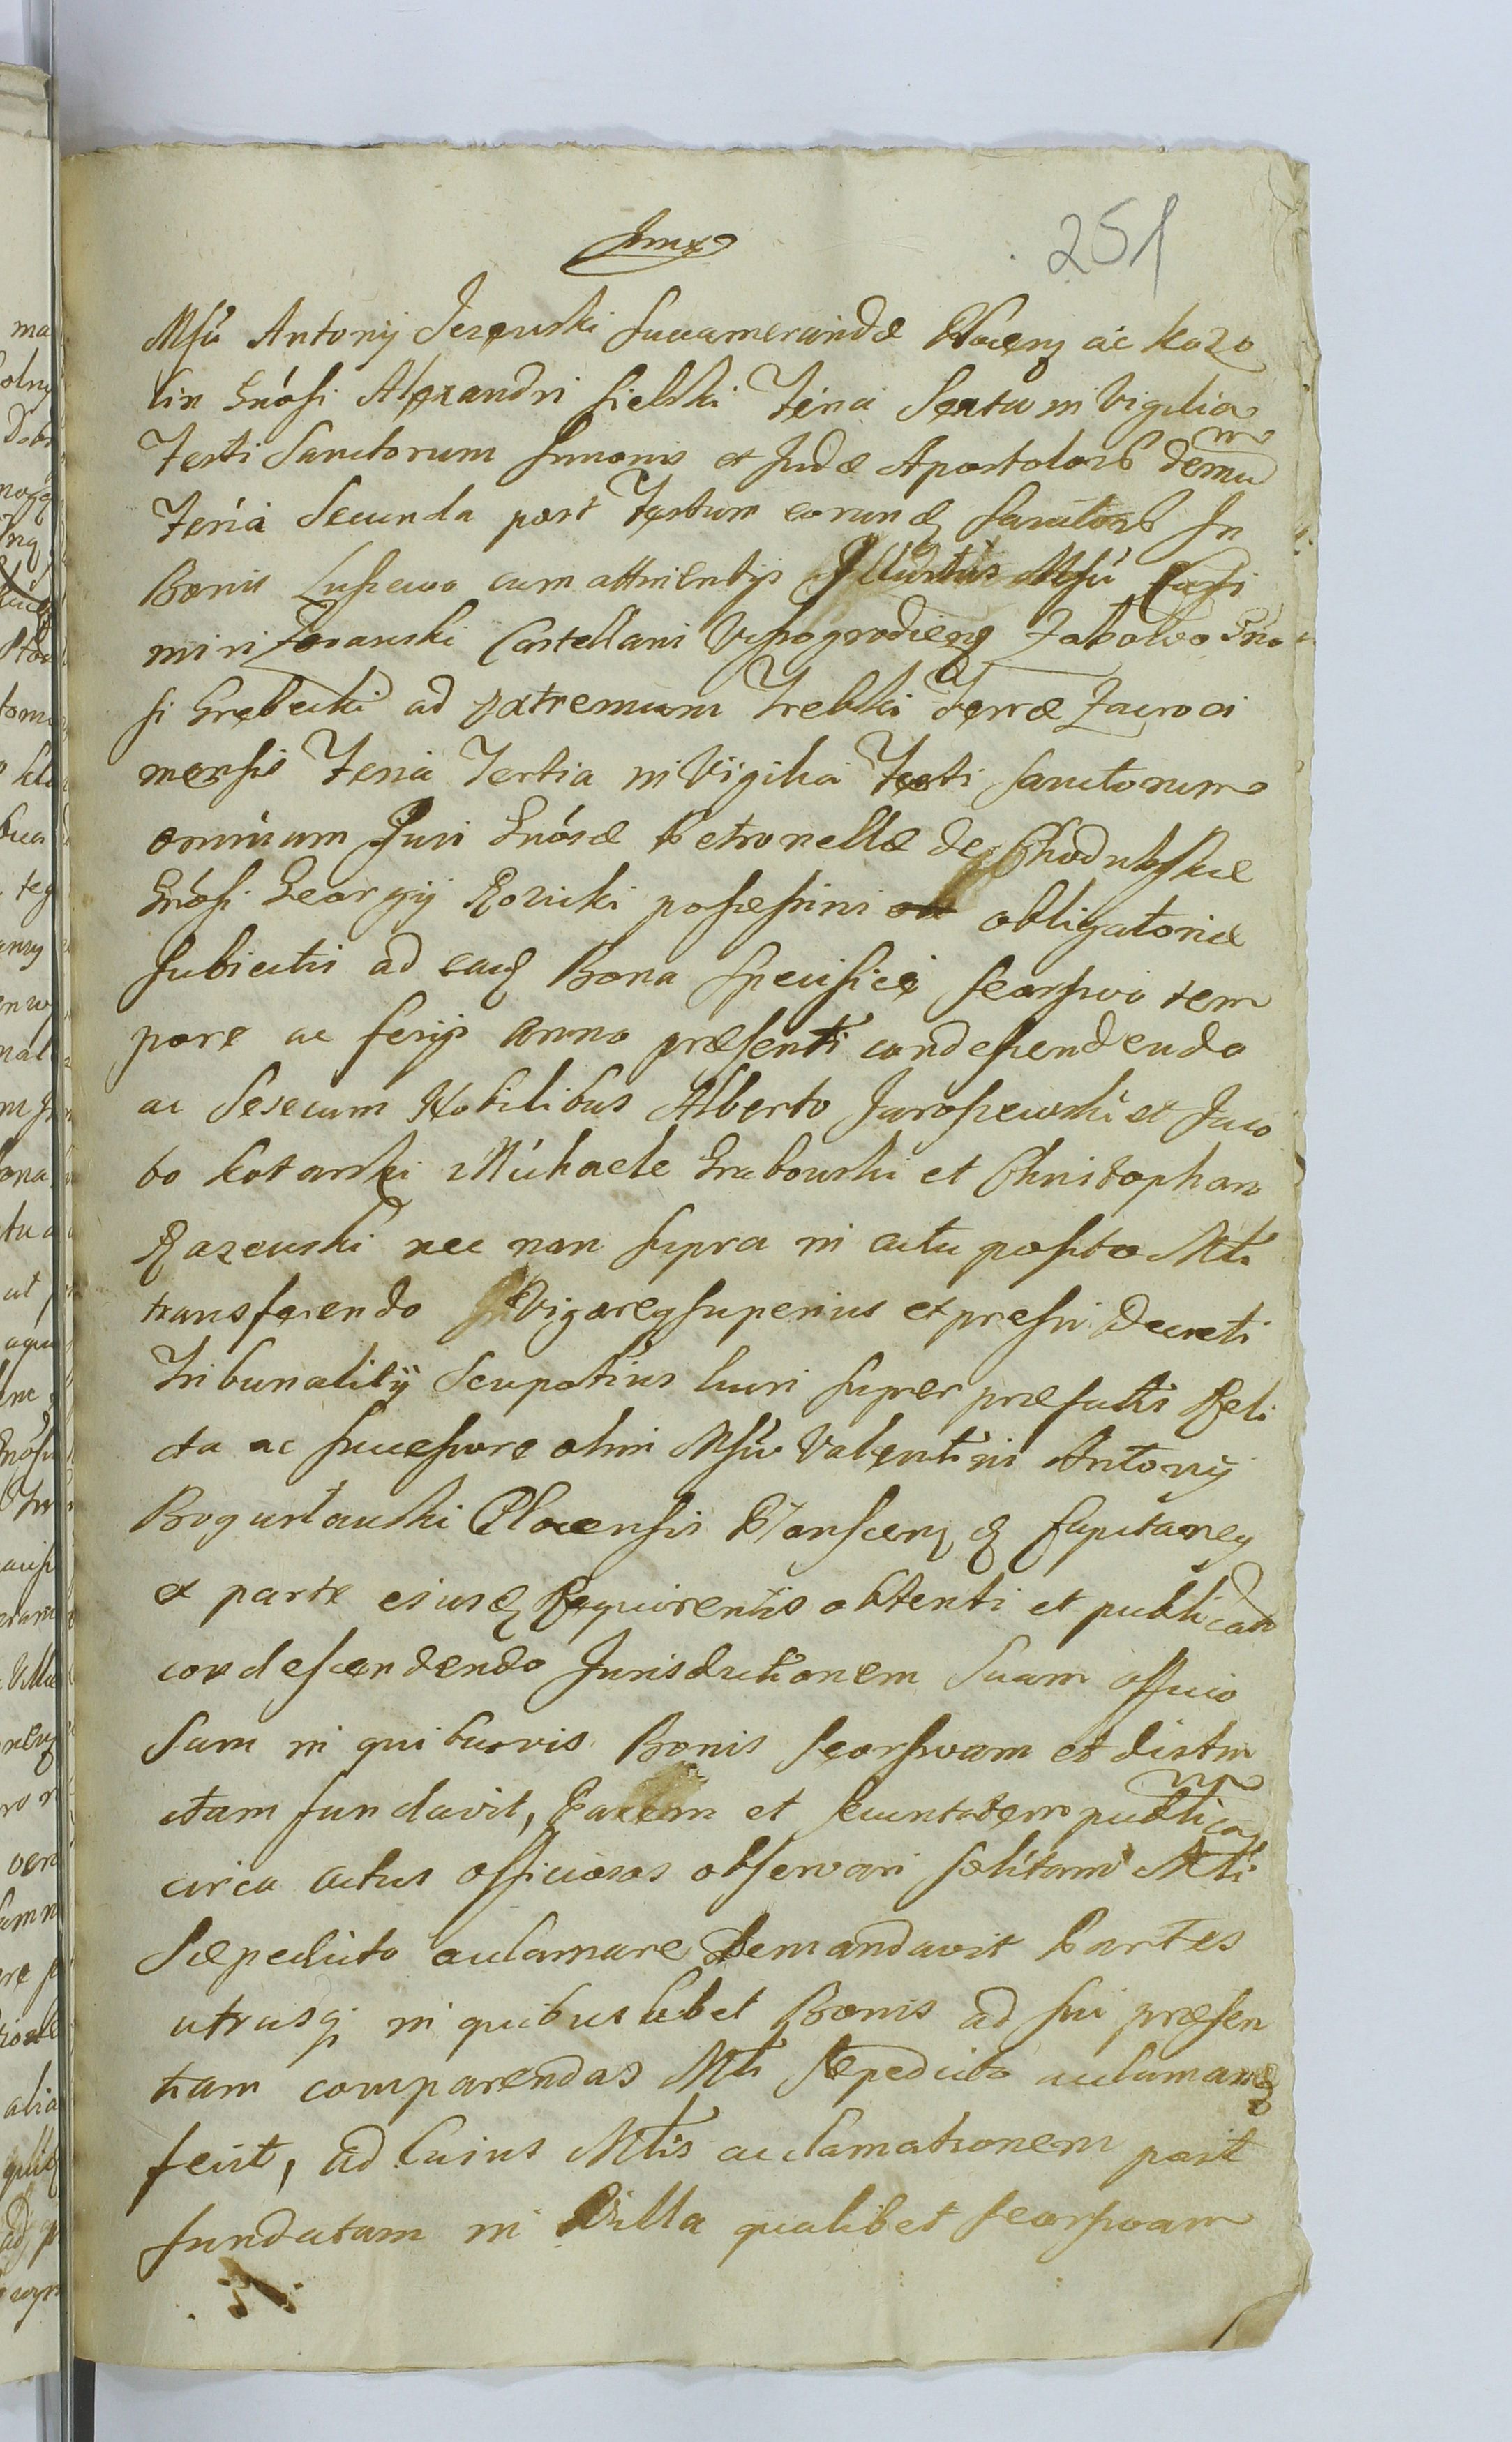 251
Mfci Antonij Jezewski Succameraridæ Plocen ac Kozo
lin Gnosi Alexandri Sielski Feria Sexta in Vigilia
Festi Sanctorum Simonis et Judæ Apostolorb demu
Feria Secunda post Festum eorund Sanctorb In
Bonis Luszewo cum attinentijs Illustris Mfci Casi
miri Zboranski Castellani Vyszogrodien Zabolwo Gno
si Grębecki ad extremum Trebki Terræ Zacroci
mensis Feria Tertia in Vigilia Festi Sanctorum
omnium Juri Gnosæ Petronellæ de
Gnosi Georgij Rosicki possessini obligatoriæ
Subiectis ad eand Bona specifice seorsivo tem
pore ac ferijs anno præsenti condescendendo
ac Sesecum Nobilibus Alberto Jaroszewski et Jaco
bo Kotarski Michaele Grabowski et Christophoro
Razewski nec non supra in actu posito Mtli
transferendo Vigoreq superius expressi Decreti
Tribunalitij Scupotius luiri super præfatis Reli
cta ac successore olim Mfci Valentini Antonij
Bogusławski Plocensis q Capitaney
ex parte eiusd Requirentis obtenti et publicati
condescendendo Jurisdictionem Suam officio
sam in quibusvis Bonis seorsivam et distin
ctam fundavit, Pacem et Securitatem publica
circa actus officiosos observari solitam Mtli
Sæpedicto aclamare demandavit Partes
utrasq in quibuslibet Bonis ad sui præsen
tiam comparendas Mtli Sæpedicto aclamare
fecit, ad cuius Mtlis aclamationem post
fundatam in Villa qualibet seorsivam